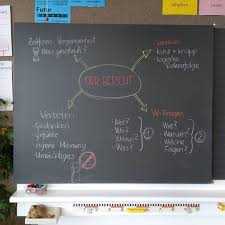 Futur
Zeitform: Vergangenheit
Was geschah?
kurz + knapp
logische
Reihenfolge
DER BERICHT
Verboten:
- Gedanken
- Gefühle
- eigene Meinung
- Unwichtiges
W-Fragen
- Wer?
- Wo?
- Wann?
- Was?
1
- Wie?
- Warum?
- Welche
Folgen?
2